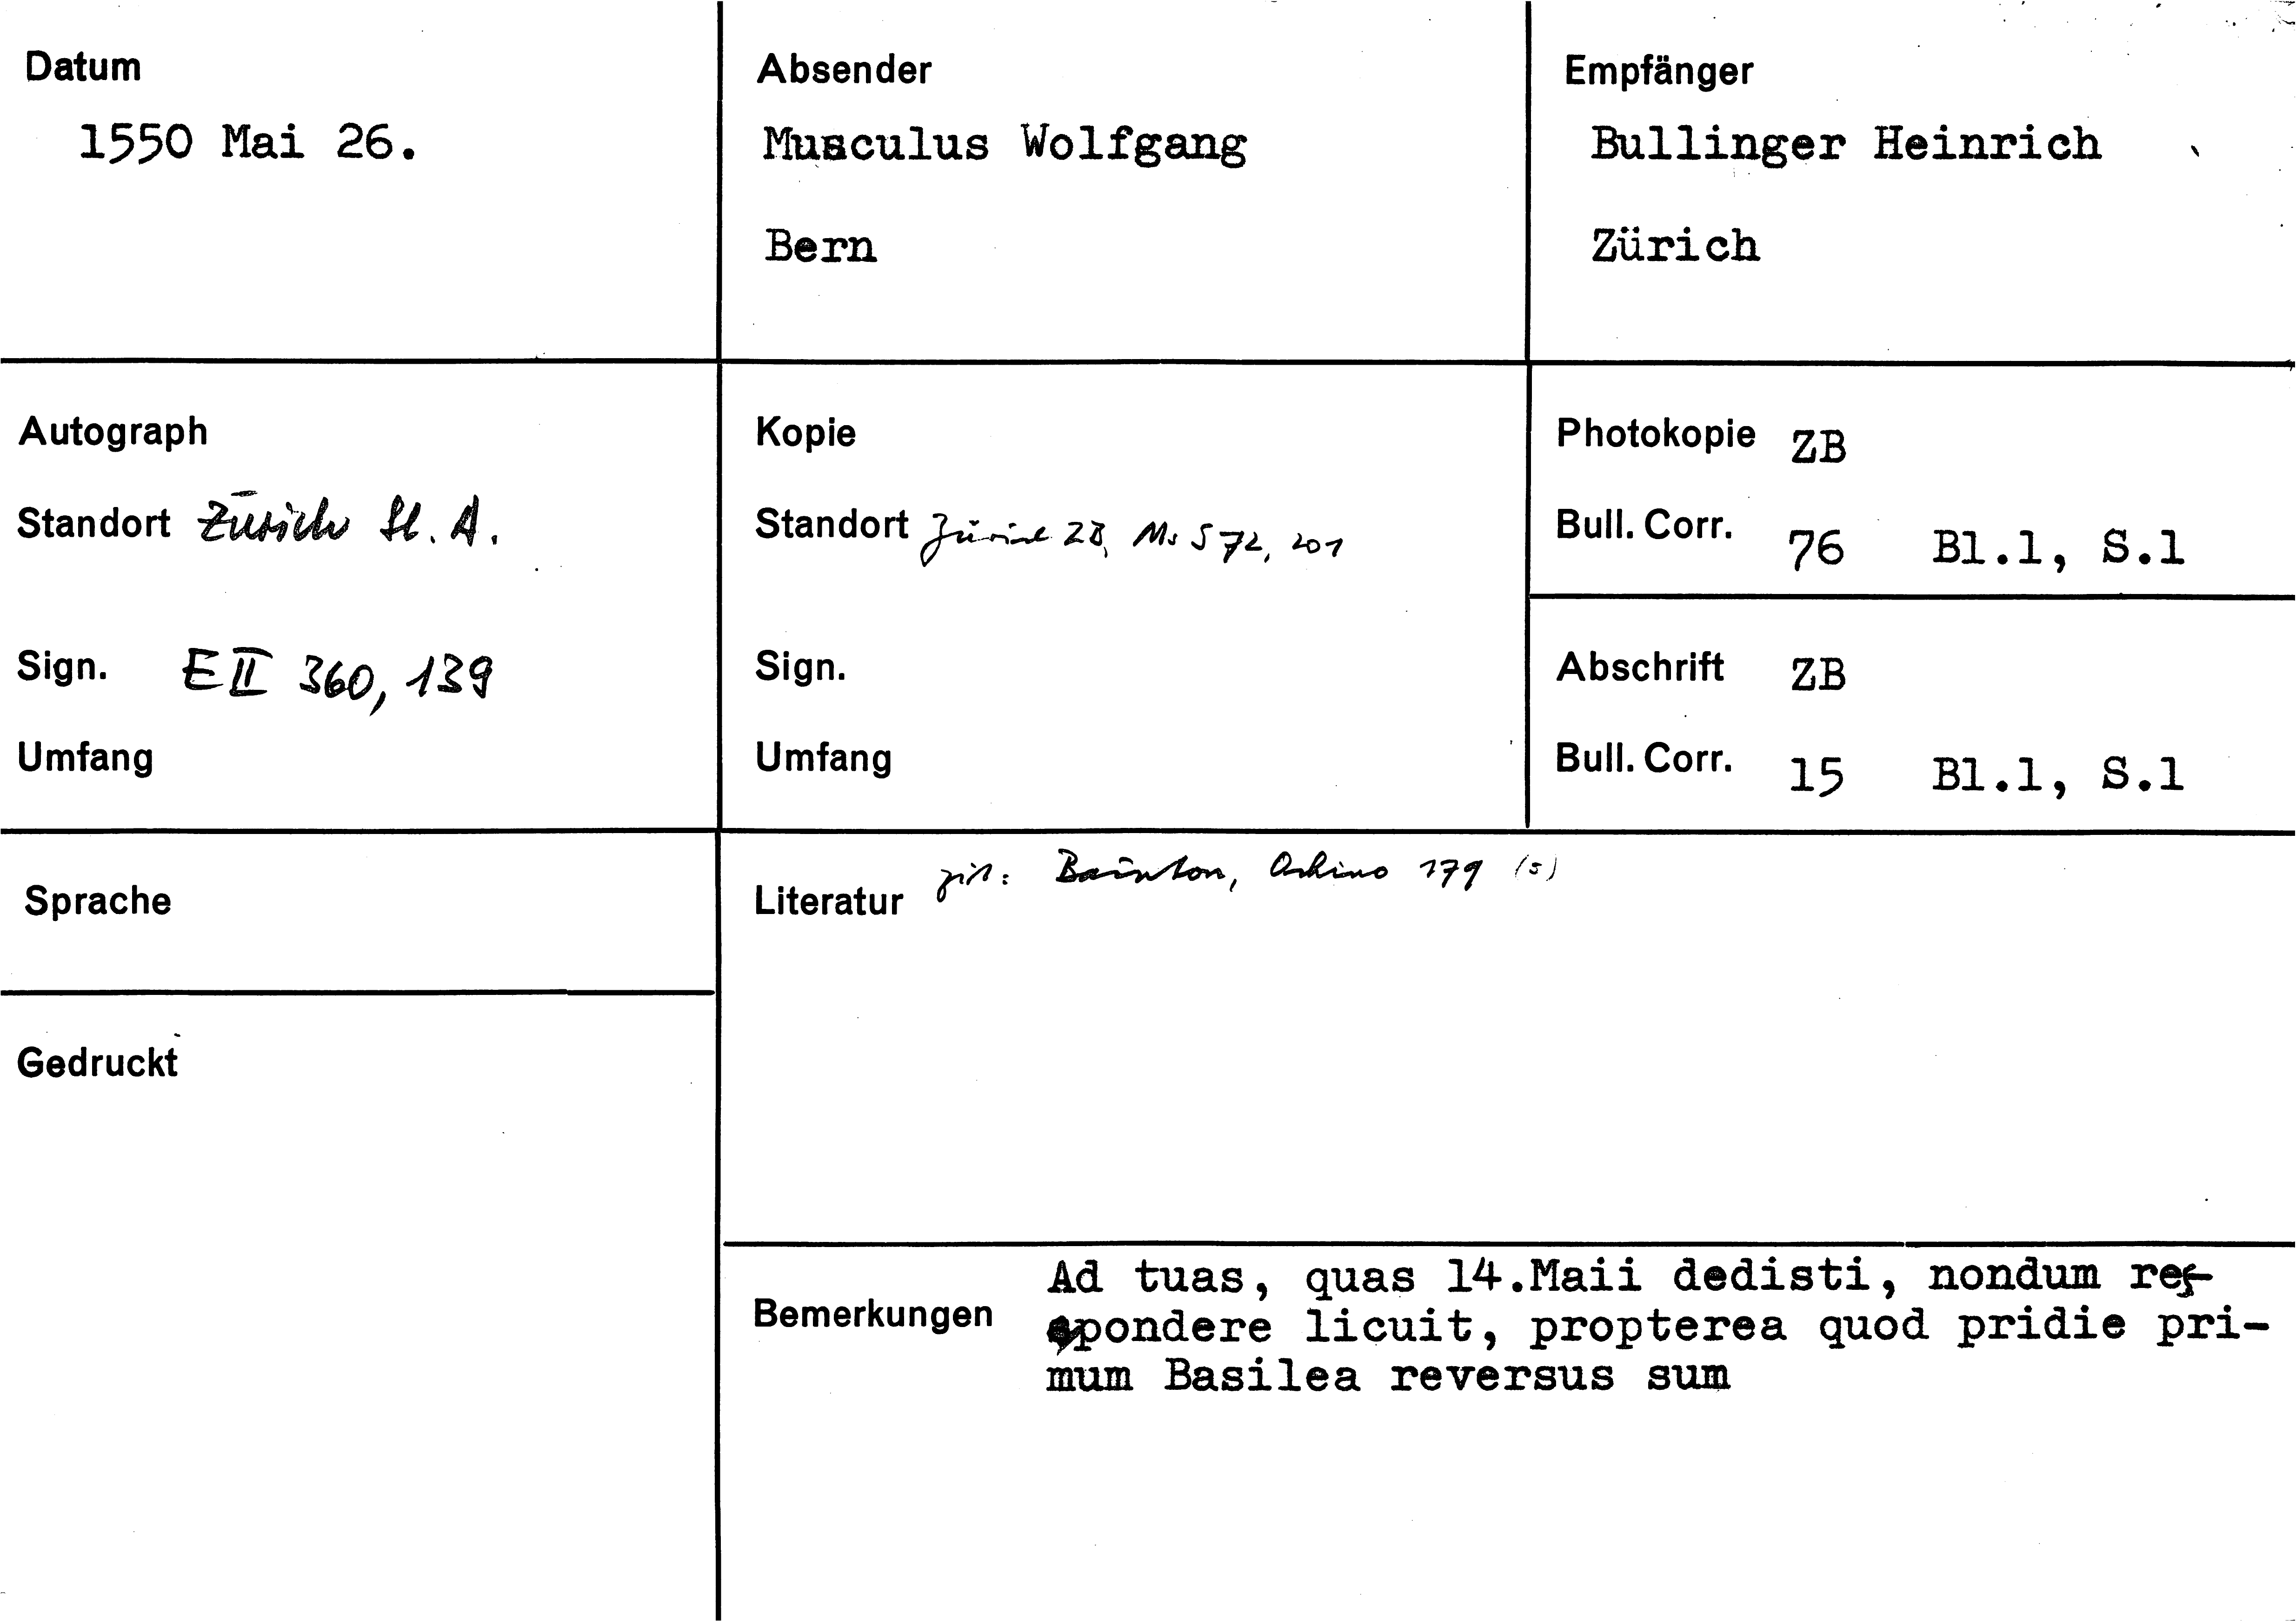 Datum
1550 Mai 26.
Absender
Musculus Wolfgang
Bern
Empfänger
Bullinger Heinrich
Zürich
Autograph
Standort Zürich St. A.
Sign. E II 360, 139
Umfang
Kopie
Standort Zürich ZB, Ms S 72, 201
Sign.
Umfang
Photokopie ZB
Bull. Corr. 76 Bl.1, S.1
Abschrift ZB
Bull. Corr. 15 Bl.1, S.1
Sprache
Gedruckt
Literatur zit: Bainton, Ochino 179 (5)
Bemerkungen
Ad tuas, quas 14.Maii dedisti, nondum res-
pondere licuit, propterea quod pridie pri-
mum Basilea reversus sum